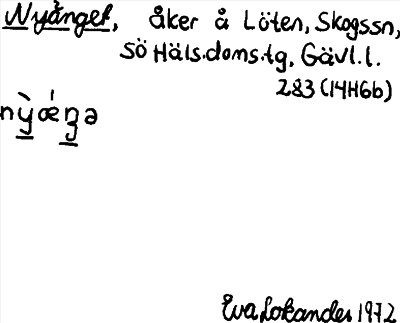 Nyänget, åker å Löten, Skogssn,
SÖ Häls.doms.tg, Gävl.l.
283 (14H6b)
nỳǽŋə
Eva Lokander 1972